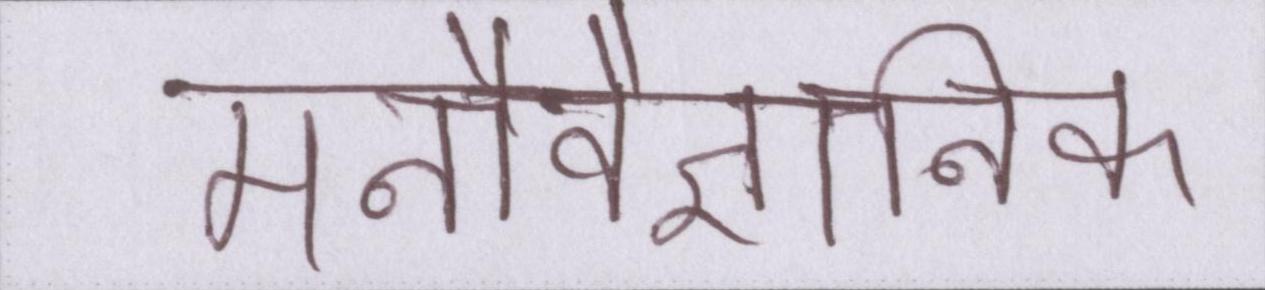 मनौवैज्ञानिक